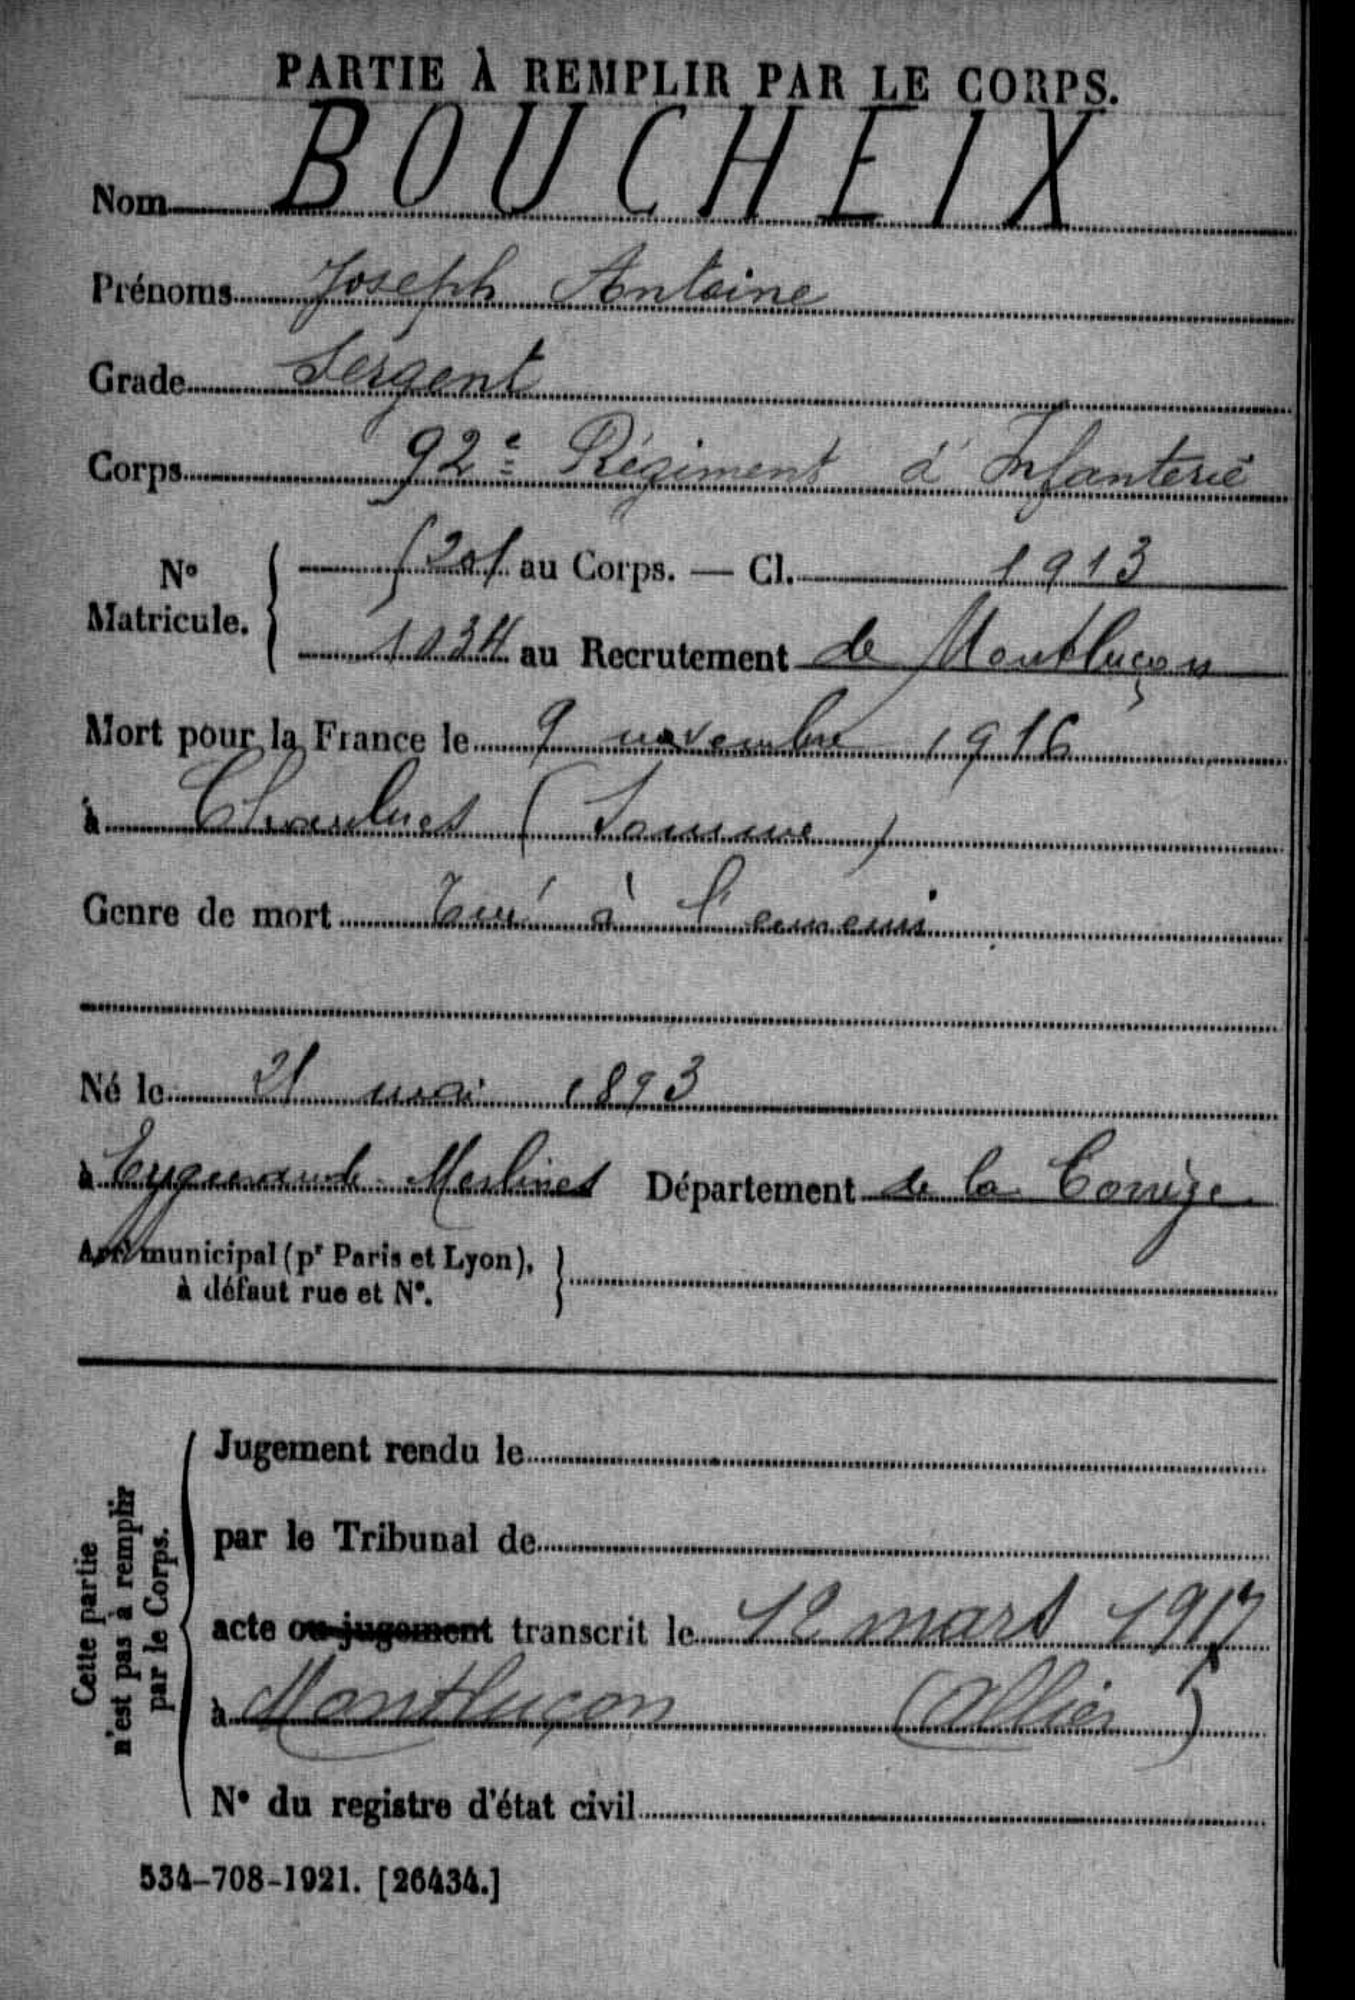 PARTIE À REMPLIR PAR LE CORPS.
Nom BOUCHEIX
Prénoms Joseph Antoine
Grade Sergent
Corps 92e Régiment d'Infanterie
N° Matricule. 5201 au Corps. — Cl. 1913
1034 au Recrutement de Montluçon
Mort pour la France le 9 novembre 1916
à Chaulnes (Somme)
Genre de mort Tué à l'ennemi
Né le 21 mai 1893
à Eygurande-Merlines Département de la Corrèze
Arrt municipal (pr Paris et Lyon),
à défaut rue et N°.
Cette partie
n'est pas à remplir
par le Corps.
Jugement rendu le
par le Tribunal de
acte ou jugement transcrit le 12 mars 1917
à Montluçon (Allier)
N° du registre d'état civil
534-708-1921. [26434.]